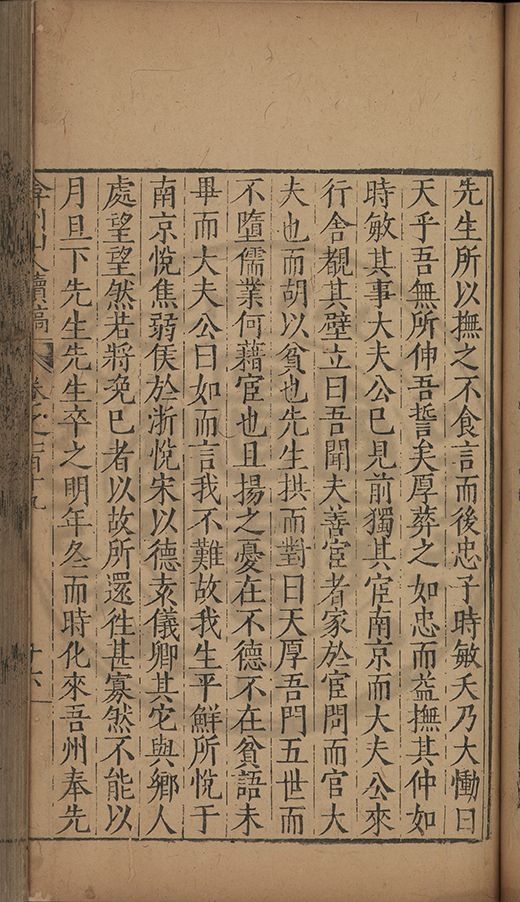 先生所以撫之不食言而後忠子時敏夭乃大慟曰
天乎吾無所伸吾誓矣厚葬之如忠而益撫其仲如
時敏其事大夫公已見前獨其宦南京而大夫公來
行舍覩其壁立曰吾聞夫善宦者家於宦問而官大
夫也而胡以貧也先生拱而對曰天厚吾門五世而
不墮儒業何藉宦也且揚之憂在不德不在貧語未
畢而大夫公曰如而言我不難故我生平鮮所悅于
南京悅焦弱侯於浙悅宋以德袁儀卿其它與鄉人
處望望然若將免已者以故所還徃甚寡然不能以
月旦下先生先生卒之明年冬而時化來吾州奉先
弇州山人續稿 卷之一百十九 十六